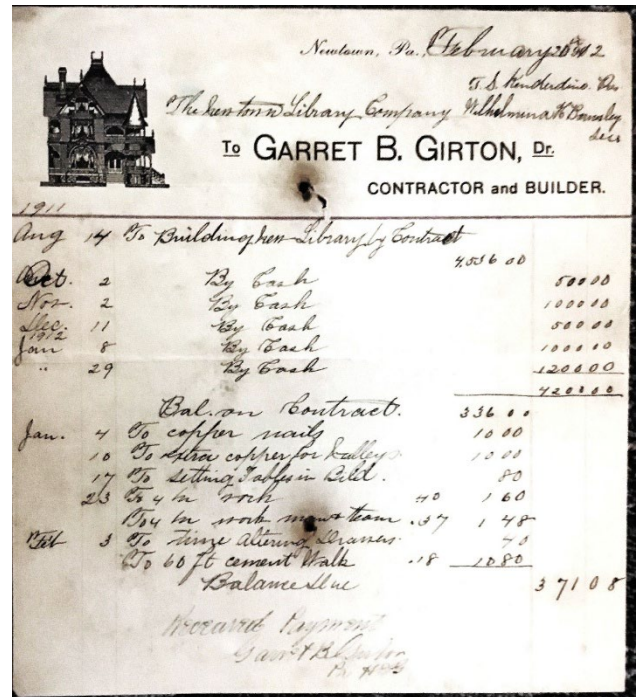 Newtown, Pa., February 20th 1912
T. S. Kenderdine. Pres
The Newtown Library Company Wilhelmina K Barnsley
Secr
To GARRET B. GIRTON, Dr.
CONTRACTOR and BUILDER.
1911
Aug 14 To Building New Library by Contract
4,536 00
Oct. 2 By Cash 500 00
Nov. 2 By Cash 1000 00
Dec. 11 By Cash 500 00
1912
Jan 8 By Cash 1000 00
" 29 By Cash 1200 00
4200 00
Bal. on Contract. 336 00
Jan. 4 To copper nails 10 00
10 To extra copper for Valleys 10 00
17 To setting Tables in Bild. 80
23 To 4 hr work 40 1 60
To 4 hr work man & team .37 1 48
Feb 3 To time altering Drawers 40
To 60 ft cement Walk .18 10 80
Balance Due 371 08
Received Payment
Garret B Girton